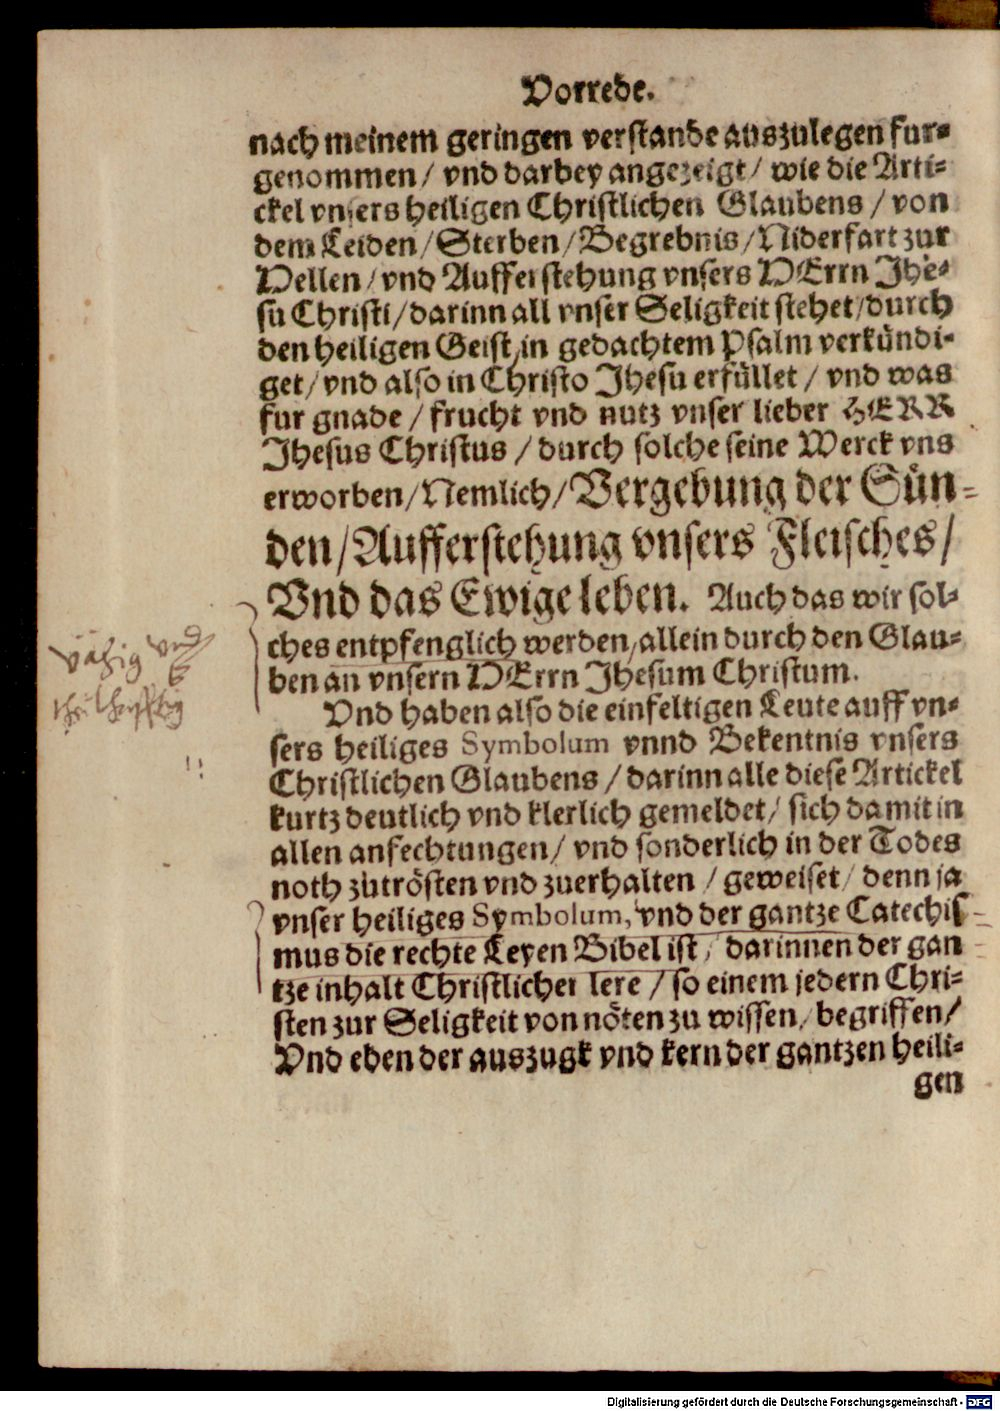 Vorrede.
nach meinem geringen verstande auszulegen fur⸗
genommen / vnd darbey angezeigt / wie die Arti⸗
ckel vnsers heiligen Christlichen Glaubens / von
dem Leiden / Sterben / Begrebnis / Niderfart zur
Hellen / vnd Aufferstehung vnsers HErrn Jhe⸗
su Christi / darinn all vnser Seligkeit stehet / durch
den heiligen Geist / in gedachtem Psalm verkündi⸗
get / vnd also in Christo Jhesu erfüllet / vnd was
fur gnade / frucht vnd nutz vnser lieber HERR
Jhesus Christus / durch solche seine Werck vns
erworben / Nemlich / Vergebung der Sün⸗
den / Aufferstehung vnsers Fleisches /
Vnd das Ewige leben. Auch das wir sol⸗
ches entpfenglich werden / allein durch den Glau⸗
ben an vnsern HErrn Jhesum Christum.
vähig vnd
theilhefftig
Vnd haben also die einfeltigen Leute auff vn⸗
sers heiliges Symbolum vnnd Bekentnis vnsers
Christlichen Glaubens / darinn alle diese Artickel
kurtz deutlich vnd klerlich gemeldet / sich damit in
allen anfechtungen / vnd sonderlich in der Todes
noth zutrösten vnd zuerhalten / geweiset / denn ja
vnser heiliges Symbolum, vnd der gantze Catechis
mus die rechte Leyen Bibel ist / darinnen der gan
tze inhalt Christlicher lere / so einem jedern Chri⸗
sten zur Seligkeit von nöten zu wissen / begriffen /
Vnd eben der auszugk vnd kern der gantzen heili⸗
gen
Digitalisierung gefördert durch die Deutsche Forschungsgemeinschaft - DFG